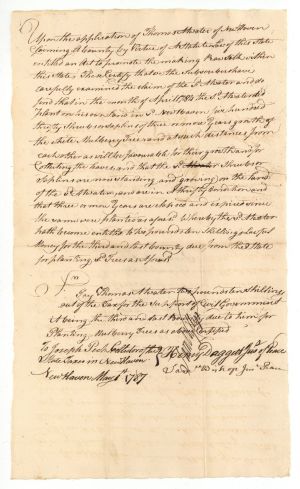 Upon the application of Thomas Atwater of New Haven
County by Virtue of a Statute Law of this State
entitled an Act to promote the making Raw Silk within
this State These Certify that we the Subscribers have
carefully examined the claim of the Sd. Atwater and do
find that in the month of April 1784 the Sd. Atwater did
plant on his own land in Sd. New Haven six hundred
thirty Shrubs or Saplins of three or more Years growth of
the white Mulberry Trees and at such distances from
each other as will be favourable for their growth and for
Collecting the leaves, and that the Sd. Shrubs or
Saplins are now standing and growing on the land
of the Sd. Atwater, and are in a thrifty condition and
that three or more Years are elapsed and expired since
the same were planted as aforesd. Whereby the Sd. Atwater
hath become entitled to two pounds ten Shillings Lawful
Money for the third and last bounty due from the State
for planting Sd. Trees as aforesd.
Pay Thomas Atwater two pounds ten Shillings
out of the Tax for the Support of Civil Government
it being the third and last Bounty due to him for
Planting Mulberry Trees as above certified
To Joseph Peck Collector of the
State Taxes in New Haven
Henry Daggett Jus. of Peace
New Haven May 1787